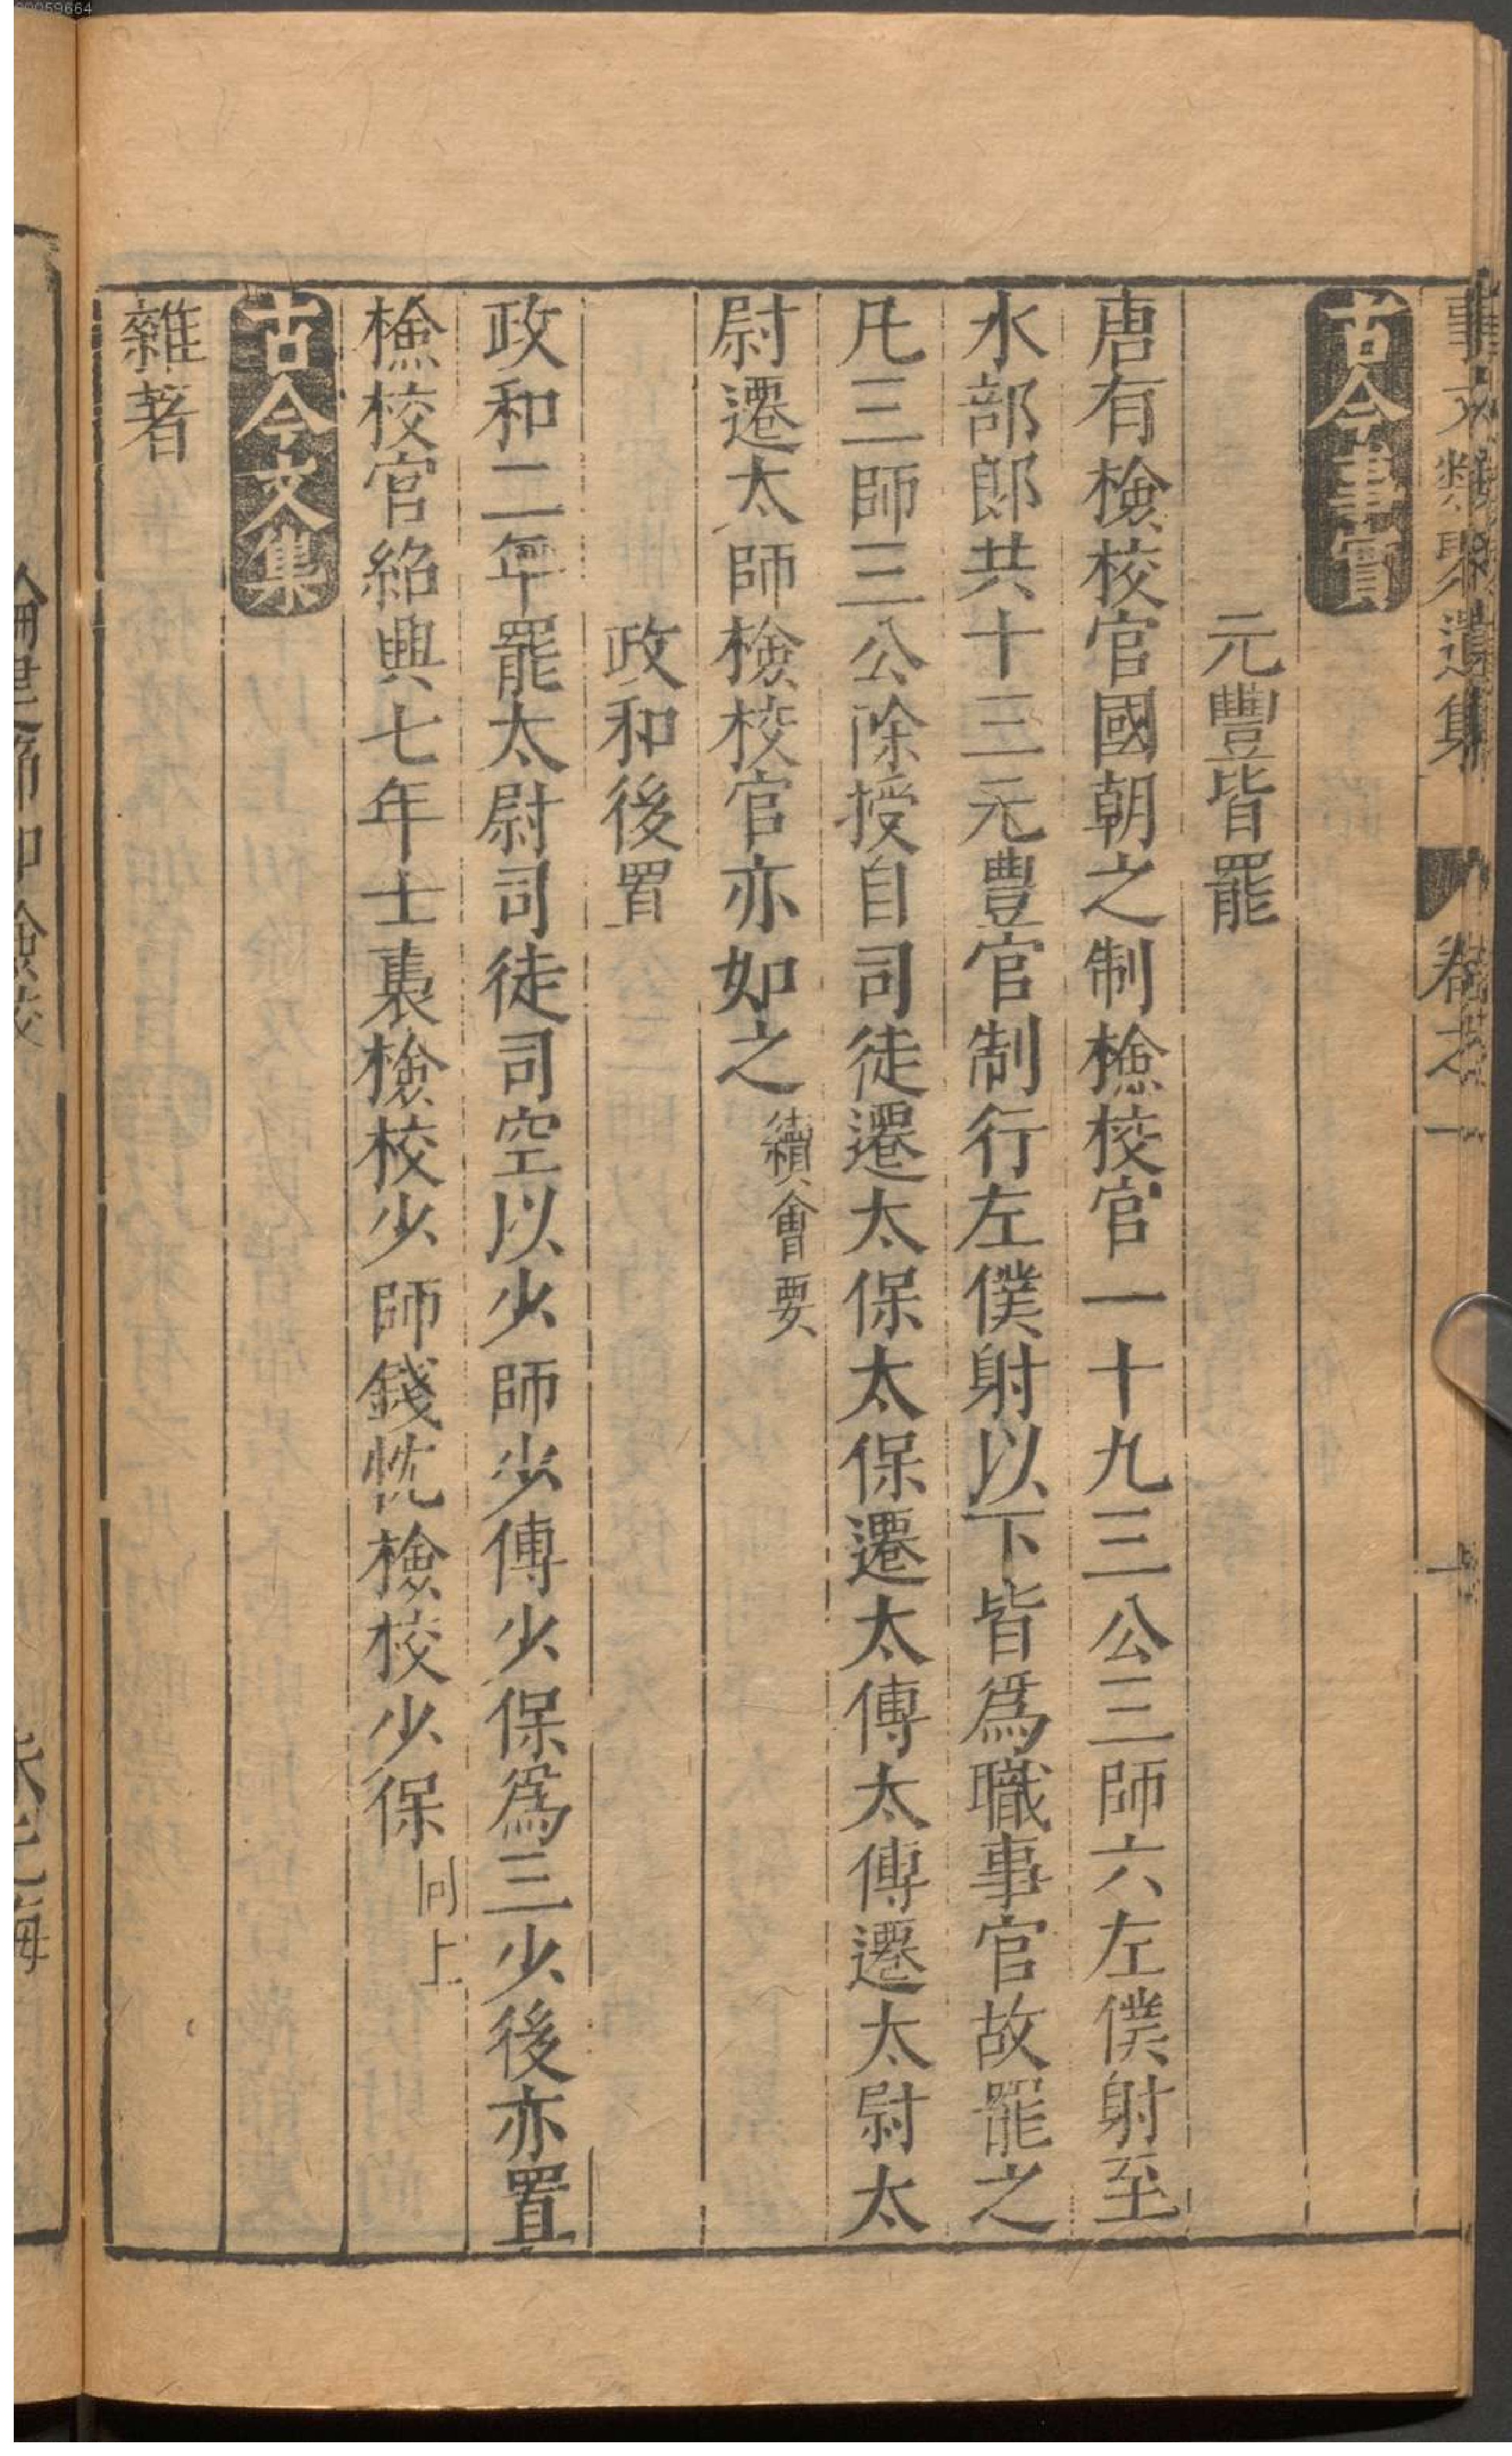 事文類聚遺集 卷之一
古今事實
元豐皆罷
唐有檢校官國朝之制檢校官一十九三公三師六左僕射至
水部郎共十三元豐官制行左僕射以下皆爲職事官故罷之
凡三師三公除授自司徒遷太保太保遷太傅太傅遷太尉太
尉遷太師檢校官亦如之續會要
政和後置
政和二年罷太尉司徒司空以少師少傅少保爲三少後亦置
檢校官紹興七年士㒟檢校少師錢忱檢校少保同上
古今文集
雜著
00059664